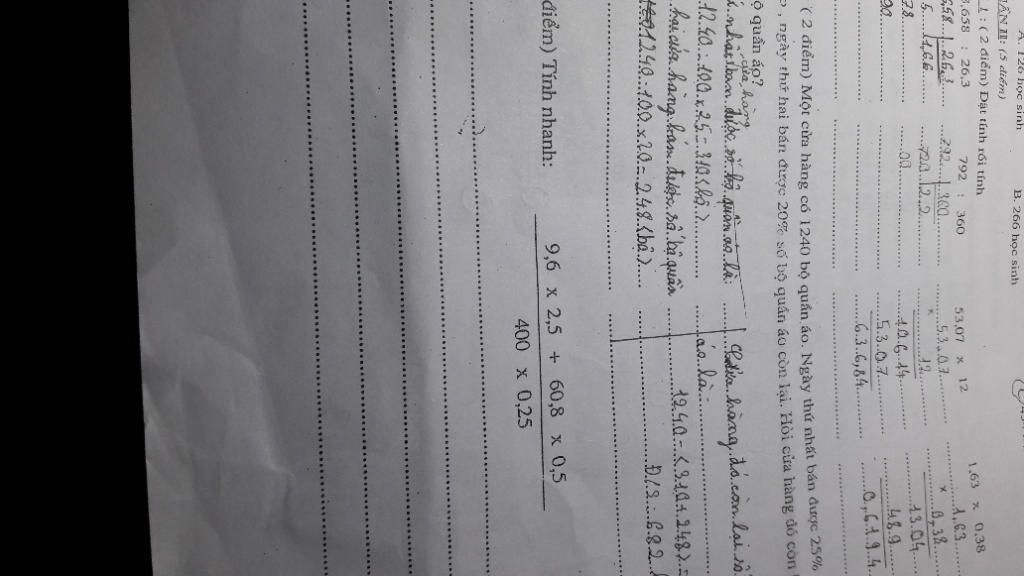 A. 126 học sinh B. 266 học sinh
PHẦN II: (5 điểm)
1 : ( 2 điểm) Đặt tính rồi tính
8.658 : 26.3 792 : 360 53,07 x 12 1,63 x 0,38
792 53,07 1,63
x 12 x 0,38
10614 1304
5307 489
636,84 0,6194
( 2 điểm) Một cửa hàng có 1240 bộ quần áo. Ngày thứ nhất bán được 25%
, ngày thứ hai bán được 20% số bộ quần áo còn lại. Hỏi cửa hàng đó còn
bộ quần áo?
cửa hàng
nhất bán được số bộ quần áo là:
1240 : 100 x 25 = 310 (bộ)
hai cửa hàng bán được số bộ quần
áo là:
1240 : 100 x 20 = 248 (bộ)
Cửa hàng đó còn lại số
1240 - (310 + 248) =
Đ/S = 682
điểm) Tính nhanh:
9,6 x 2,5 + 60,8 x 0,5
400 x 0,25